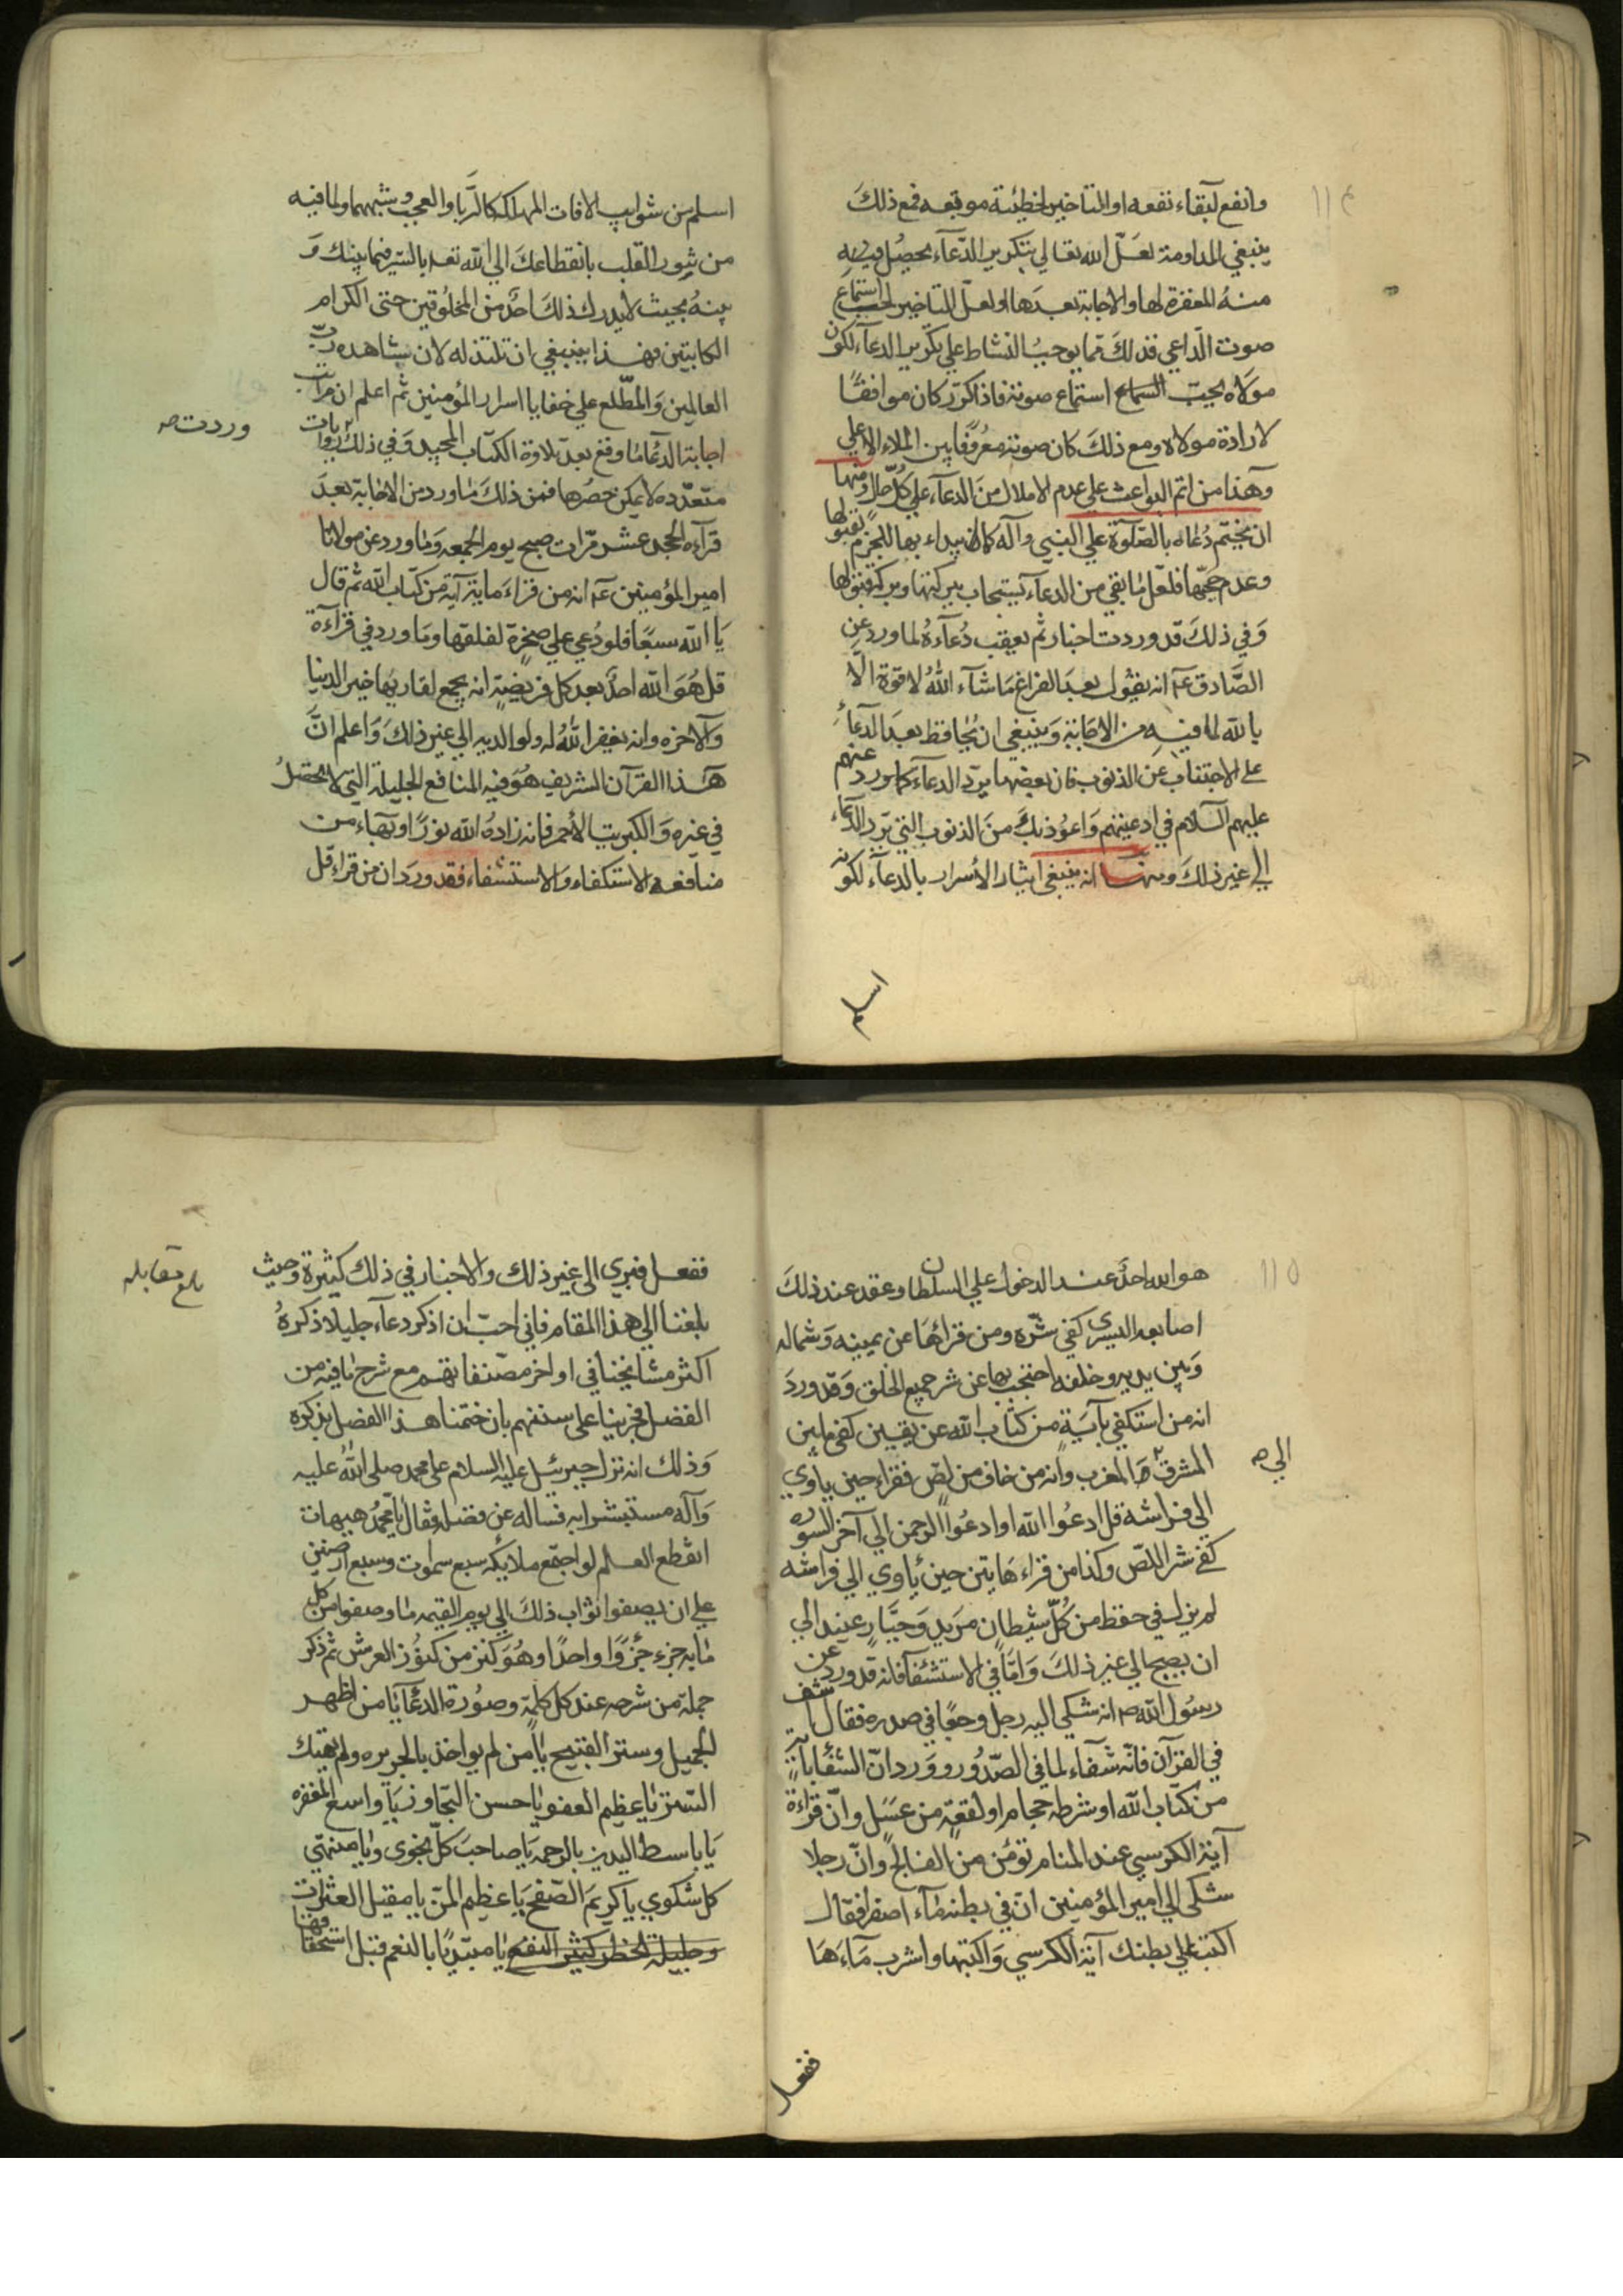 ١١٤
وانفع لبقاء نفعه او التاخير لخطيئة موبقه فمع ذلك
ينبغي المداومة لعلّ الله تعالى بتكرير الدّعاء يحصل فيه
منه المغفرة لها والاجابة بعدها او لعلّ التاخير لحبّ استماع
صوت الداعي فذلك مما يوجب النشاط على تكرير الدعاء لكون
مولاه يحبّ السماع استماع صوته فاذا كرّر كان موافقًا
لارادة مولاه ومع ذلك كان صوته معروفًا بين الملاء الاعلى
وهذا من اتم البواعث على عدم الاملال من الدعاء على كلّ حال ومنها
ان يختم دعاه بالصّلوة على النبي وآله كما ان يبداء بها للجزم بقبولها
وعدم حجبها فلعل ما بقي من الدعاء يستجاب ببركتها وبركة قبولها
وفي ذلك قد وردت اخبار ثم يعقب دعاءه لما ورد عن
الصّادق عم انه يقول بعد الفراغ ما شاء الله لا قوة الّا
بالله لما فيه من الاجابة وينبغي ان يحافظ بعد الدعاء
على الاجتناب عن الذنوب فان بعضها يردّ الدعاء كما ورد عنهم
عليهم السلام في ادعيتهم واعوذ بك من الذنوب التي تردّ الدعاء
الى غير ذلك ومنها انه ينبغي ايثار الأسرار بالدعاء لكونه
اسلم
اسلم من شوايب الافات المهلكة كالرّيا والعجب وشبههما ولما فيه
من شور القلب بانقطاعك الى الله تعد بالسّر فيما بينك و
بينه بحيث لا يدرك ذلك احد من المخلوقين حتى الكرام
الكاتبين وهذا ينبغي ان تلتذ له لان يشاهده ربّ
العالمين والمطّلع على خفايا اسرار المؤمنين ثم اعلم ان مراتب
اجابة الدعا ما وقع بعد تلاوة الكتاب المجيد وفي ذلك روايات
وردت صه
متعدّده لا يمكن حصرها فمن ذلك ما ورد من الاجابة بعد
قرآءه الحمد عشر مرّات صبح يوم الجمعه وما ورد عن مولانا
امير المؤمنين عم انه من قراء ماية آية من كتاب الله ثم قال
يا الله سبعًا فلو دعي على صخرة لفلقها وما ورد في قراءة
قل هو الله احد بعد كل فريضة انه يجمع لقاريها خير الدنيا
والآخره وانه يغفر الله له ولوالديه الى غير ذلك واعلم انّ
هذا القرآن الشريف هو فيه المنافع الجليلة التي لا تحصل
في غيره والكبريت الأحمر فانه زاده الله نورًا وبهاء من
منافعه الاستكفاء والاستشفاء فقد ورد ان من قراء قل
١١٥
هو الله احد عند الدخول على السلطان وعقد عند ذلك
اصابعه اليسرى كفي شرّه ومن قرأها عن يمينه وشماله
وبين يديه وخلفه احتجب بها عن شر جميع الخلق وقد ورد
انه من استكفي بآية من كتاب الله عن يقين كفى ما بين
المشرق و المغرب وانه من خاف من لصّ فقراء حين ياوي
الى صه
الى فراشه قل ادعوا الله او ادعوا الرحمن الى آخر السوره
كفى شر اللصّ وكذا من قراء هاتين حين ياوي الى فراشه
لم يزل في حفظ من كلّ شيطان مريد وجبّار عنيد الى
ان يصبح الى غير ذلك وامّا في الاستشفا فانه قد ورد عن
رسول الله صم انه شكى اليه رجل وجعًا في صدره فقال استشف
في القرآن فانّه شفاء لما في الصّدور وورد انّ الشفا بآية
من كتاب الله او شرطه حجام او لعقة من عسل وانّ قراءة
آية الكرسي عند المنام تؤمن من الفالج وانّ رجلا
شكى الى امير المؤمنين انّ في بطنه ماء اصفر فقال
اكتب على بطنك آية الكرسي واكتبها واشرب ماءها
ففعل
ففعل فبري الى غير ذلك والاخبار في ذلك كثيرة وحيث
بلغ مقابله
بلغنا الى هذا المقام فاني احبّ ان اذكر دعاء جليلا ذكره
اكثر مشايخنا في اواخر مصنفاتهم مع شرح ما فيه من
الفضل فجرينا على سننهم بان ختمنا هذا الفصل بذكره
وذلك انه نزل جبرئيل عليه السلام على محمد صلى الله عليه
وآله مستبشرا به فساله عن فضله فقال يا محمد هيهات
انقطع العلم لو اجتمع ملايكه سبع سموات وسبع ارضين
على ان يصفوا ثواب ذلك الى يوم القيمه ما وصفوا من كل
مايه جزء جزوا واحدًا وهو كنز من كنوز العرش ثم ذكر
جملة من شرحه عند كل كلمة وصورة الدعا يا من اظهر
الجميل وستر القبيح يا من لم يواخذ بالجريره ولم يهتك
الستر يا عظيم العفو يا حسن التجاوز يا واسع المغفره
يا باسط اليدين بالرحمه يا صاحب كلّ نجوى ويا منتهى
كل شكوي يا كريم الصّفح يا عظيم المنّ يا مقيل العثرات
وجليلة الخطر كثير النفع يا مبتديًا بالنعم قبل استحقاقها